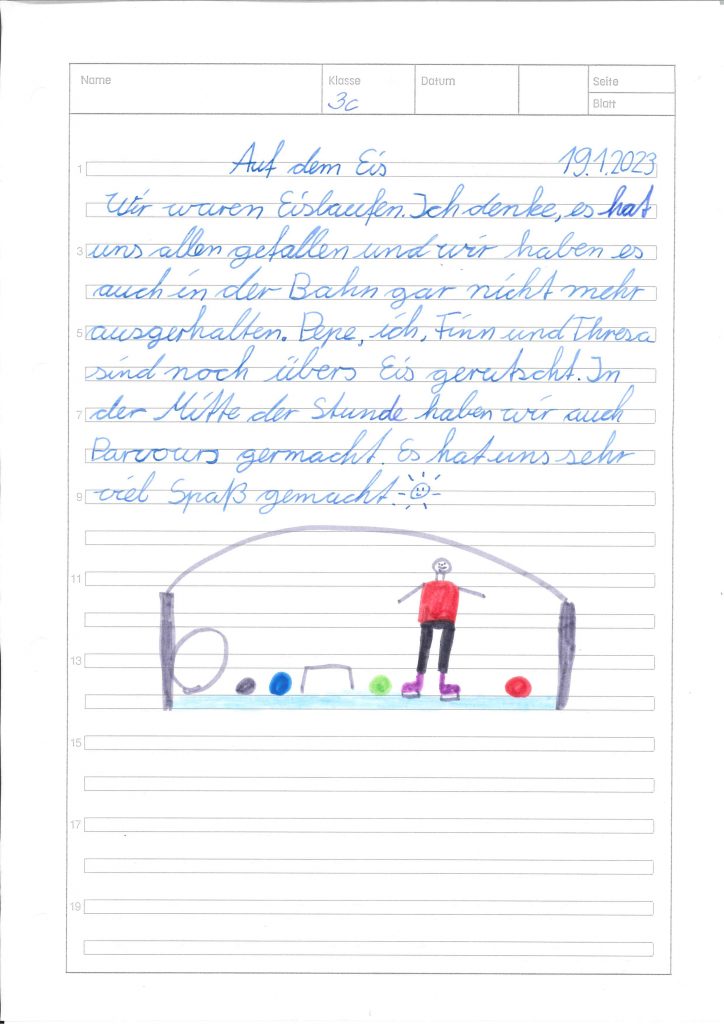 Name Klasse Datum Seite
3c Blatt
1 Auf dem Eis 19.1.2023
Wir waren Eislaufen. Ich denke, es hat
3 uns allen gefallen und wir haben es
auch in der Bahn gar nicht mehr
5 ausgerhalten. Pepe, ich, Finn und Thresa
sind noch übers Eis gerutscht. In
7 der Mitte der Stunde haben wir auch
Parvours germacht. Es hat uns sehr
9 viel Spaß gemacht
11
13
15
17
19